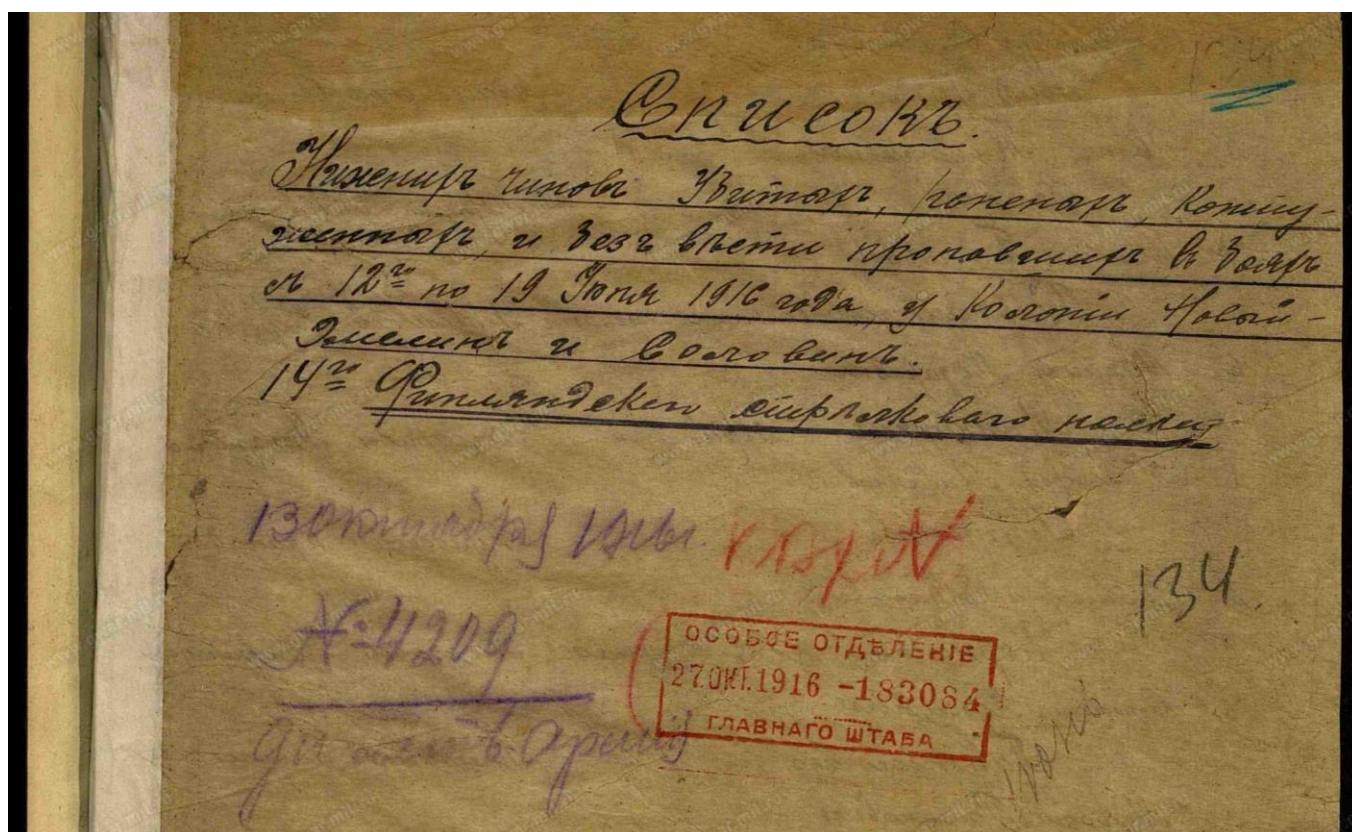 Списокъ.
Нижнихъ чиновъ Убитыхъ, раненыхъ, конту-
женныхъ, и безъ вѣсти пропавшихъ въ бояхъ
съ 12го по 19 Іюня 1916 года, у Колоніи Новый-
и
14го Финляндскаго стрѣлковаго полка
13 октября 1916г.
№ 4209
134.
ОСОБОЕ ОТДѢЛЕНІЕ
27.ОКТ.1916 -183084
ГЛАВНАГО ШТАБА
Армія